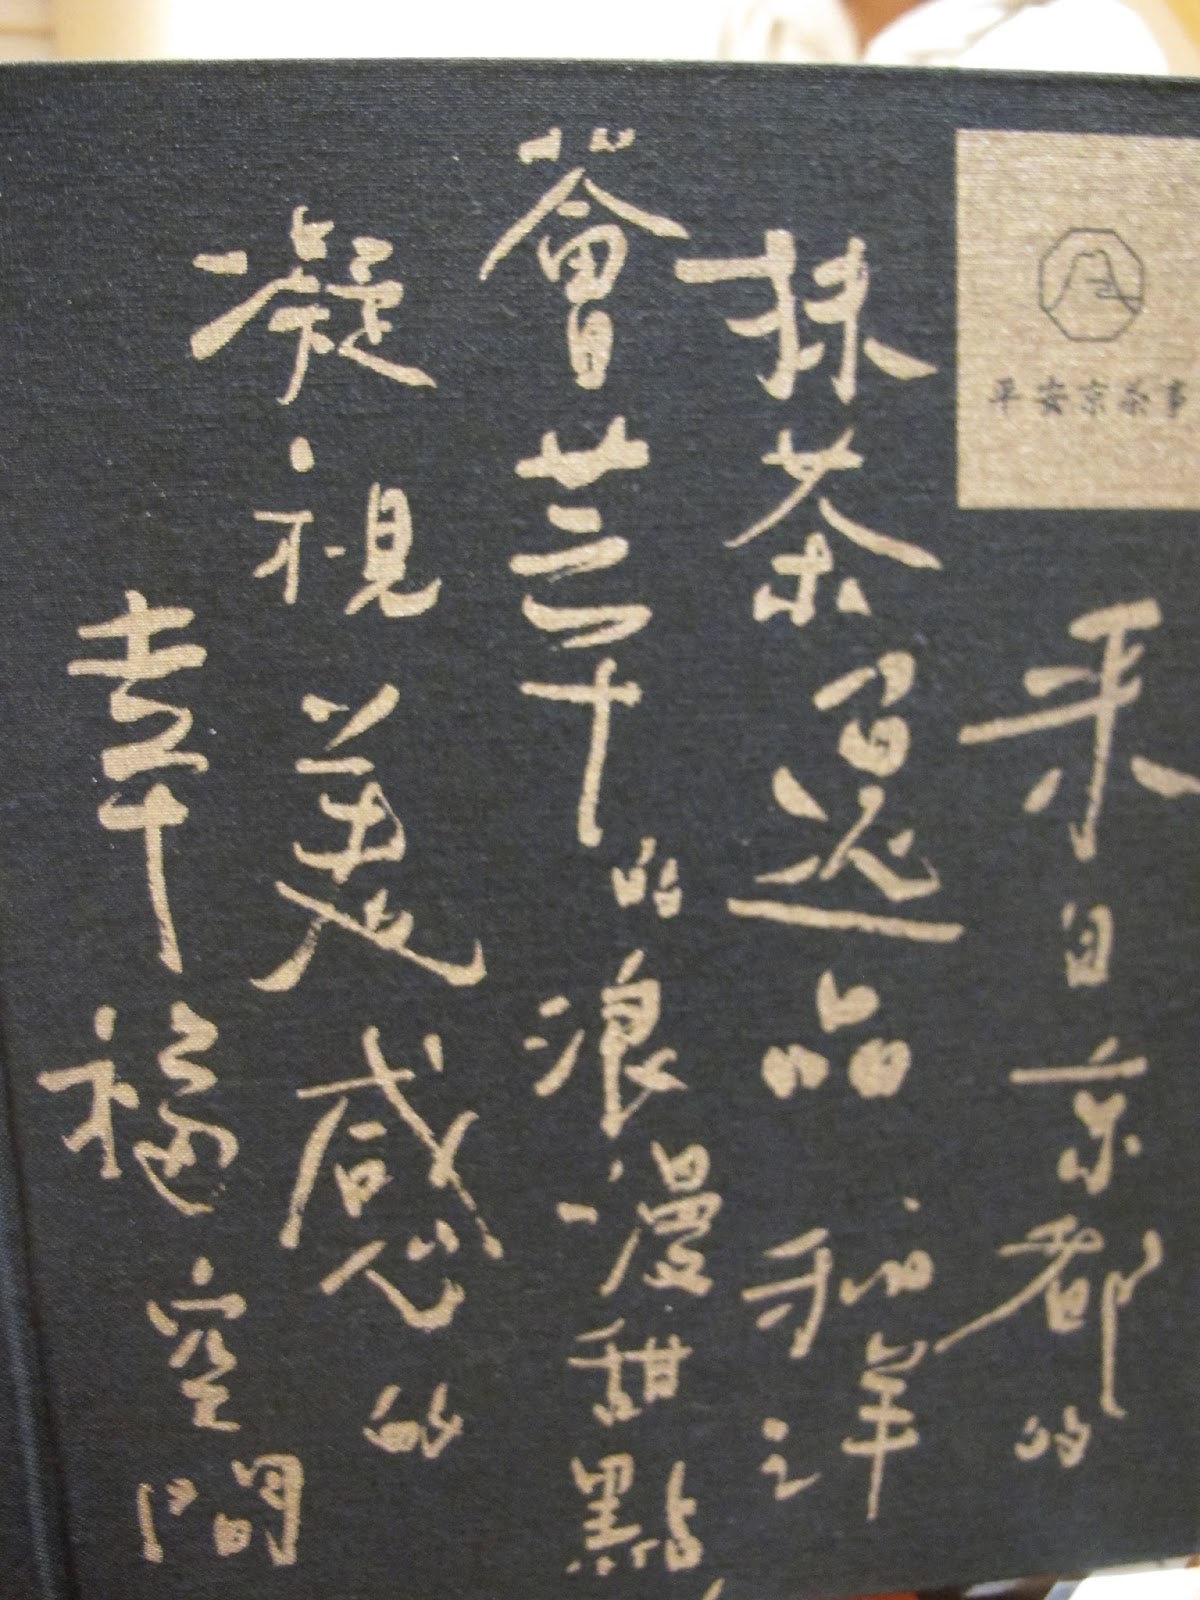 平安京茶事
來自京都的
抹茶逸品和洋之
薈萃的浪漫甜點
凝視美感的
幸福空間